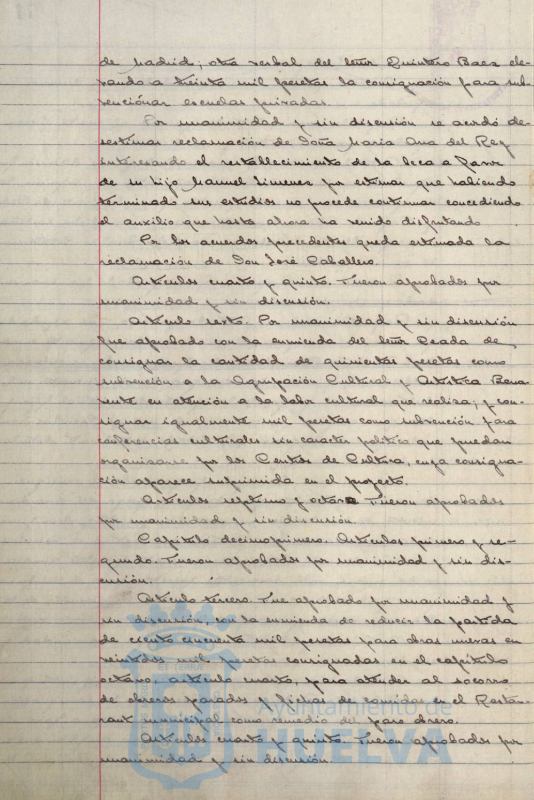 de Madrid; otra verbal del Señor Quintero Baez ele-
vando a treinta mil pesetas la consignación para sub-
vencionar escuelas privadas.
Por unanimidad y sin discusión se acordó de-
sestimar reclamación de Doña María Ana del Rey
interesando el restablecimiento de la beca a favor
de su hijo Manuel Jimenez por estimar que habiendo
terminado sus estudios no procede continuar concediendo
el auxilio que hasta ahora ha venido disfrutando
Por los acuerdos precedentes queda estimada la
reclamación de Don José Caballero.
Artículos cuarto y quinto. Fueron aprobados por
unanimidad y sin discusión.
Artículo sexto. Por unanimidad y sin discusión
fue aprobado con la enmienda del Señor de
consignar la cantidad de quinientas pesetas como
subvención a la Agrupación Cultural y Artística Bena-
vente en atención a la labor cultural que realiza; y con-
signar igualmente mil pesetas como subvención para
conferencias culturales sin caracter político que puedan
organizarse por los Centros de Cultura, cuya consigna-
ción aparece suprimida en el proyecto.
Artículos septimo y octavo Fueron aprobados
por unanimidad y sin discusión.
Capítulo decimoprimero. Artículos primero y se-
gundo. Fueron aprobados por unanimidad y sin dis-
cusión.
Artículo tercero. Fue aprobado por unanimidad y
sin discusión, con la enmienda de reducir la partida
de ciento cincuenta mil pesetas para obras nuevas en
veintidos mil pesetas consignadas en el capítulo
octavo, artículo cuarto, para atender al socorro
de obreros parados y fichas de comidas en el Restau-
rant municipal como remedio del paro obrero.
Artículos cuarto y quinto. Fueron aprobados por
unanimidad y sin discusión.
Ayuntamiento de
HUELVA